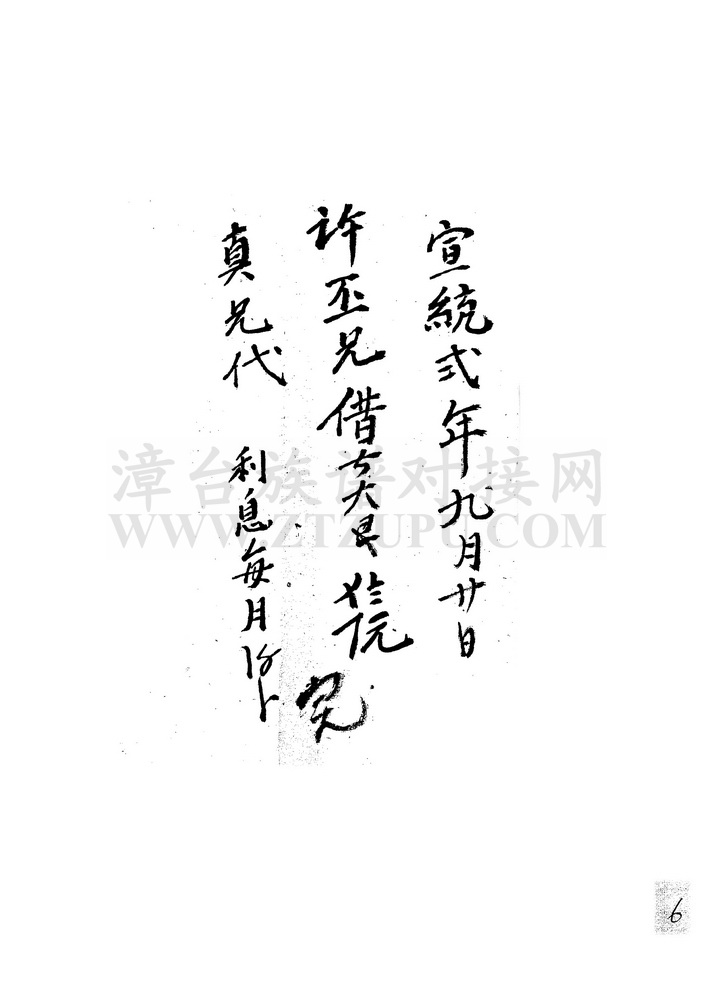 宣統弍年九月廿日
許丕兄借去大艮
真兄代 利息每月
漳台族谱对接网
WWW.ZTZUPU.COM
6